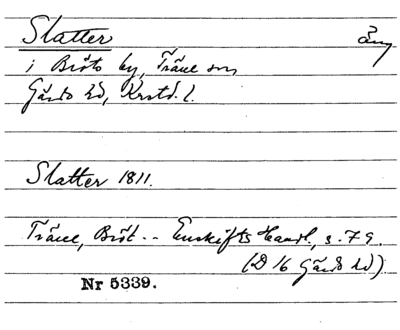 Slatter äng
i Bröts by, Träne sn
Gärds hd, Krstd. l.
Slatter 1811.
Träne, Bröt -- Enskifts Handl., s. 79.
(D 16 Gärds hd).
Nr 5339.